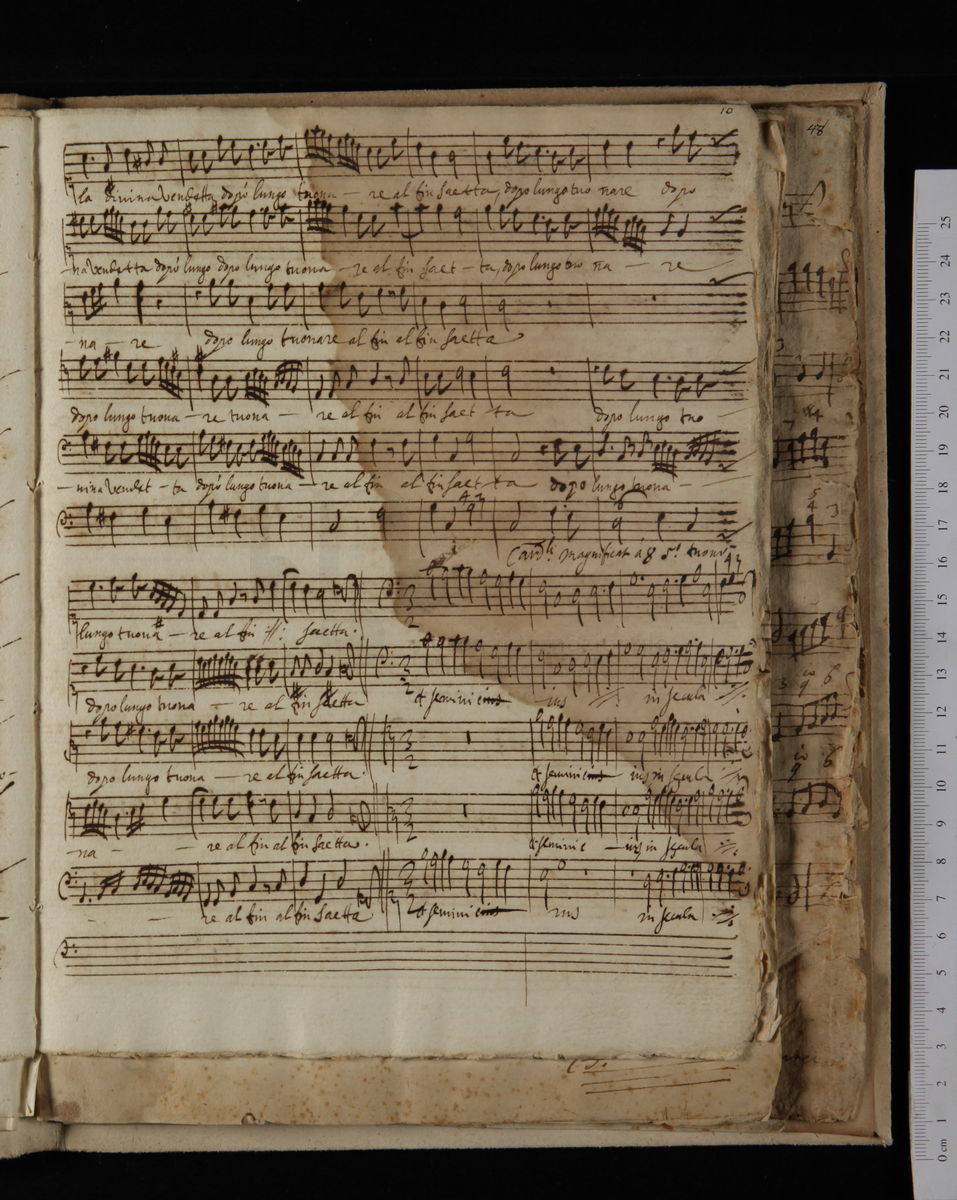 10
48
la divina Vendetta dopò lungo tuona - re al fin saetta, dopo lungo tuo nare dopo
- na Vendetta dopò lungo dopo lungo tuona - re al fin saet - ta, dopo lungo tuo na - - re
- na - re dopo lungo tuonare al fin al fin saetta
dopo lungo tuona - re tuona - re al fin al fin saet - ta dopo lungo tuo -
- vina Vendet - ta dopò lungo tuona - re al fin al fin saet - ta dopo lungo tuona -
4 3
6
Magnificat a 8 5.º tuono
43
lungo tuona - re al fin saetta.
dopo lungo tuona - re al fin saetta et semini ius in secula
dopo lungo tuona - re al fin saetta. et semini ius in secula
- na - - re al fin al fin saetta. et semini e - ius in secula
- - re al fin al fin saetta et semini ius in secula
25
24
23
22
21
20
19
18
17
16
15
14
13
12
11
10
9
8
7
6
5
4
3
2
1
0 cm